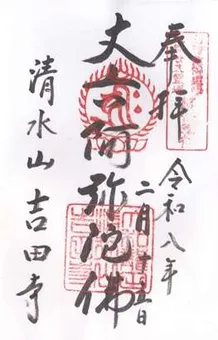 奉拝
令和八年
二月十五日
丈六阿弥陀佛
清水山吉田寺